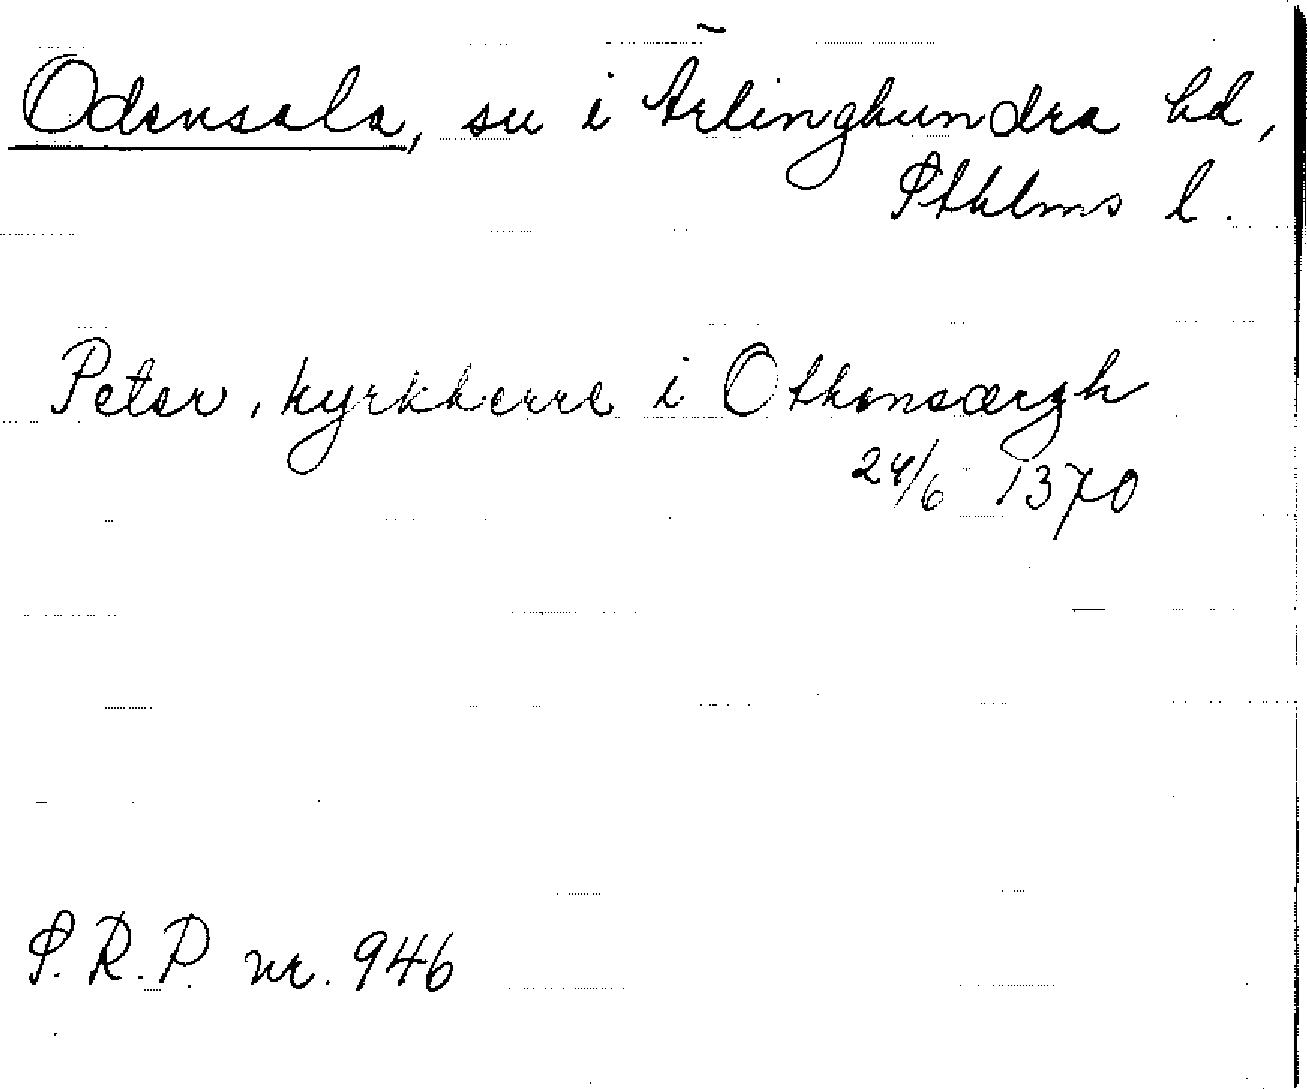 Odensala, sn i Ärlinghundra hd,
Sthlms l.
Peter, kyrkherre i Othonsærgh
24/6 1370
S.R.P. nr. 946